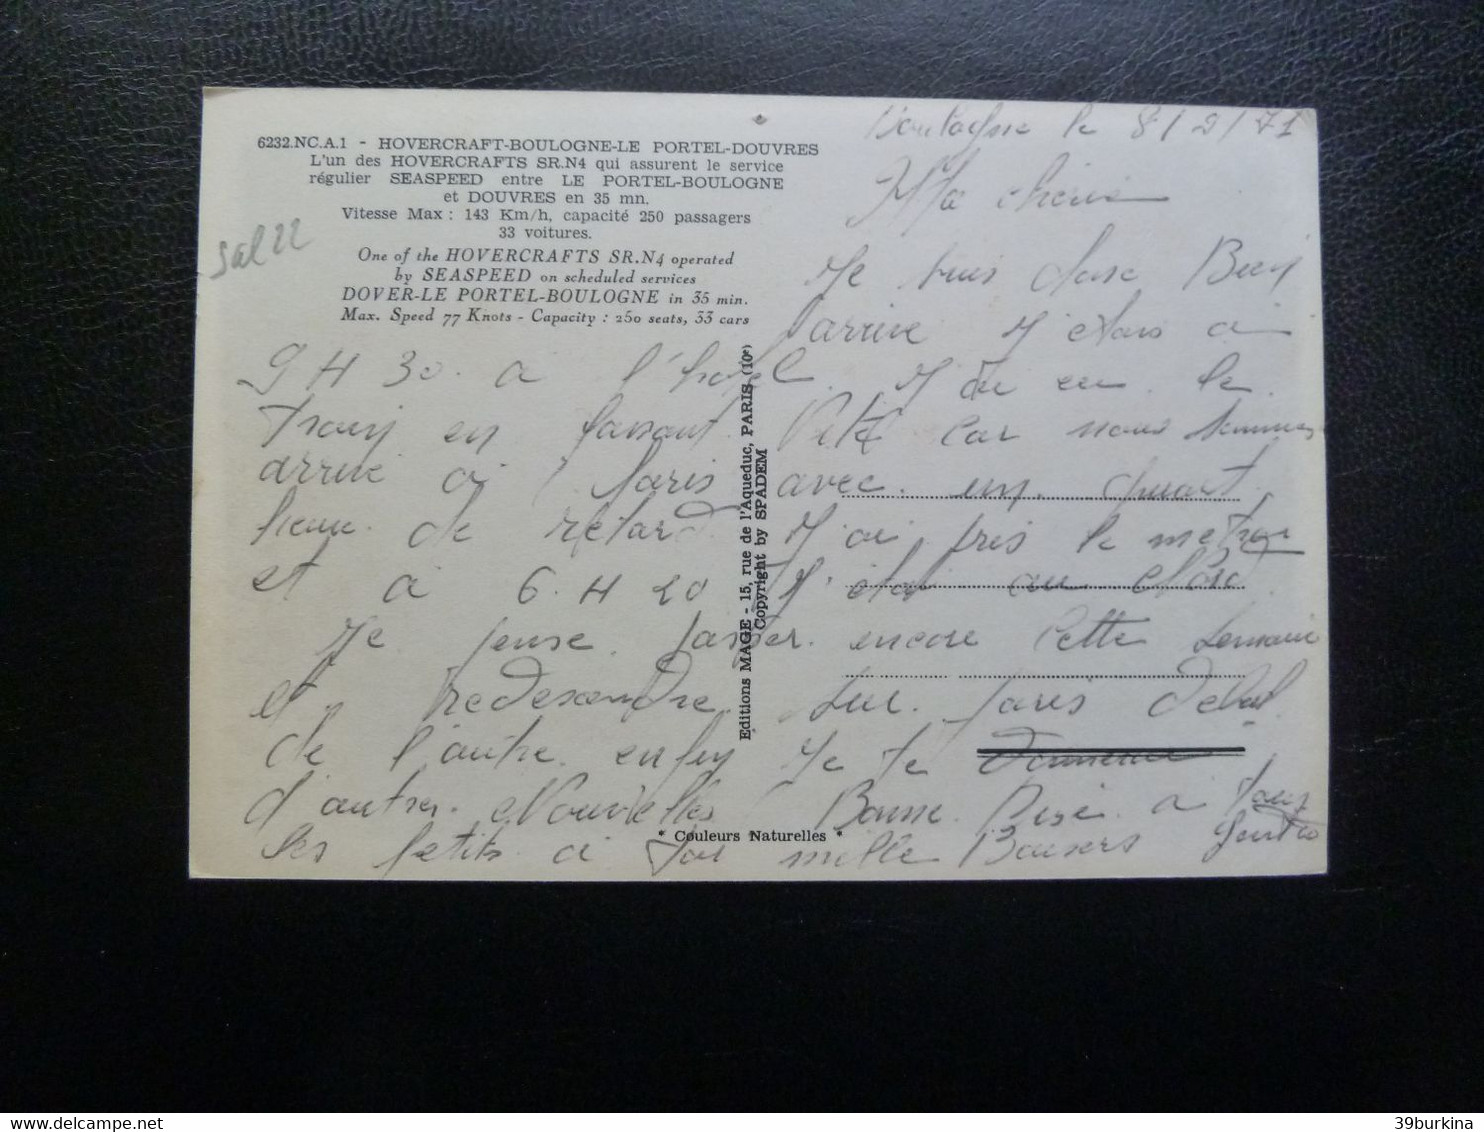 6232.NC.A.1 - HOVERCRAFT-BOULOGNE-LE PORTEL-DOUVRES
L'un des HOVERCRAFTS SR.N4 qui assurent le service
régulier SEASPEED entre LE PORTEL-BOULOGNE
et DOUVRES en 35 mn.
Vitesse Max : 143 Km/h, capacité 250 passagers
33 voitures.
One of the HOVERCRAFTS SR.N4 operated
by SEASPEED on scheduled services
DOVER-LE PORTEL-BOULOGNE in 35 min.
Max. Speed 77 Knots - Capacity : 250 seats, 33 cars
sal 22
le 8/2/71
Ma cherie
Je suis Bien
arrive J etais a
9 H 30. a l'hotel. J du en le
train en faisant Vite car nous sommes
arrive a Paris avec un quart
heure de retard J'ai pris le metro
et a 6.H 20 J'etai au Nord
Je pense passer encore cette semaine
et redesendre sur Paris debut
de l'autre enfin Je te donnerai
d'autres Nouvelles Bonne Bise a tous
les petits a toi mille Baisers
Editions MAGE - 15, rue de l'Aqueduc, PARIS (10e)
Copyright by SPADEM
* Couleurs Naturelles *
39burkina